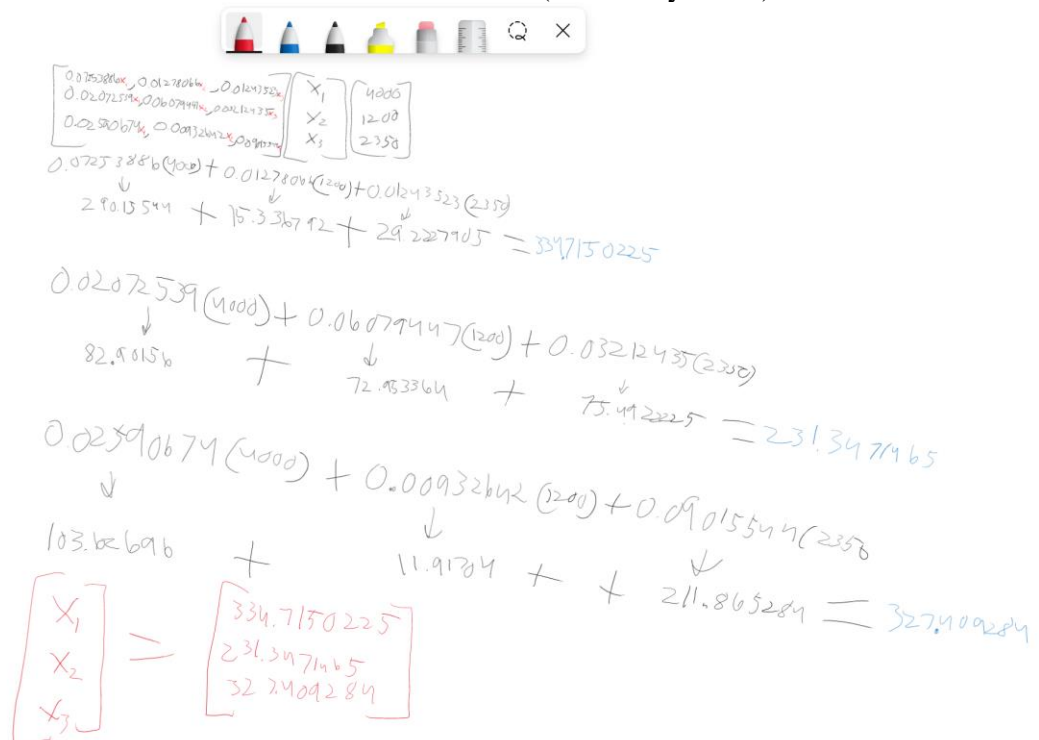 0.07253886x₁, 0.0127806x₂, 0.0124352x₃ X₁ 4000
0.02072539x₁, 0.06079447x₂, 0.03212435x₃ X₂ 1200
0.02590674x₁, 0.00932642x₂, X₃ 2350
0.07253886(4000) + 0.01278066(1200) + 0.01243523(2350)
290.15544 + 15.336792 + 29.2227905 = 334.7150225
0.02072539(4000) + 0.06079447(1200) + 0.03212435(2350)
82.90156 + 72.953364 + 75.4922225 = 231.3471465
0.02590674(4000) + 0.00932642(1200) + 0.09015544(2350
103.62696 + 11.91704 + + 211.865284 = 327.409284
X₁ 334.7150225
X₂ = 231.3471465
X₃ 327.409284